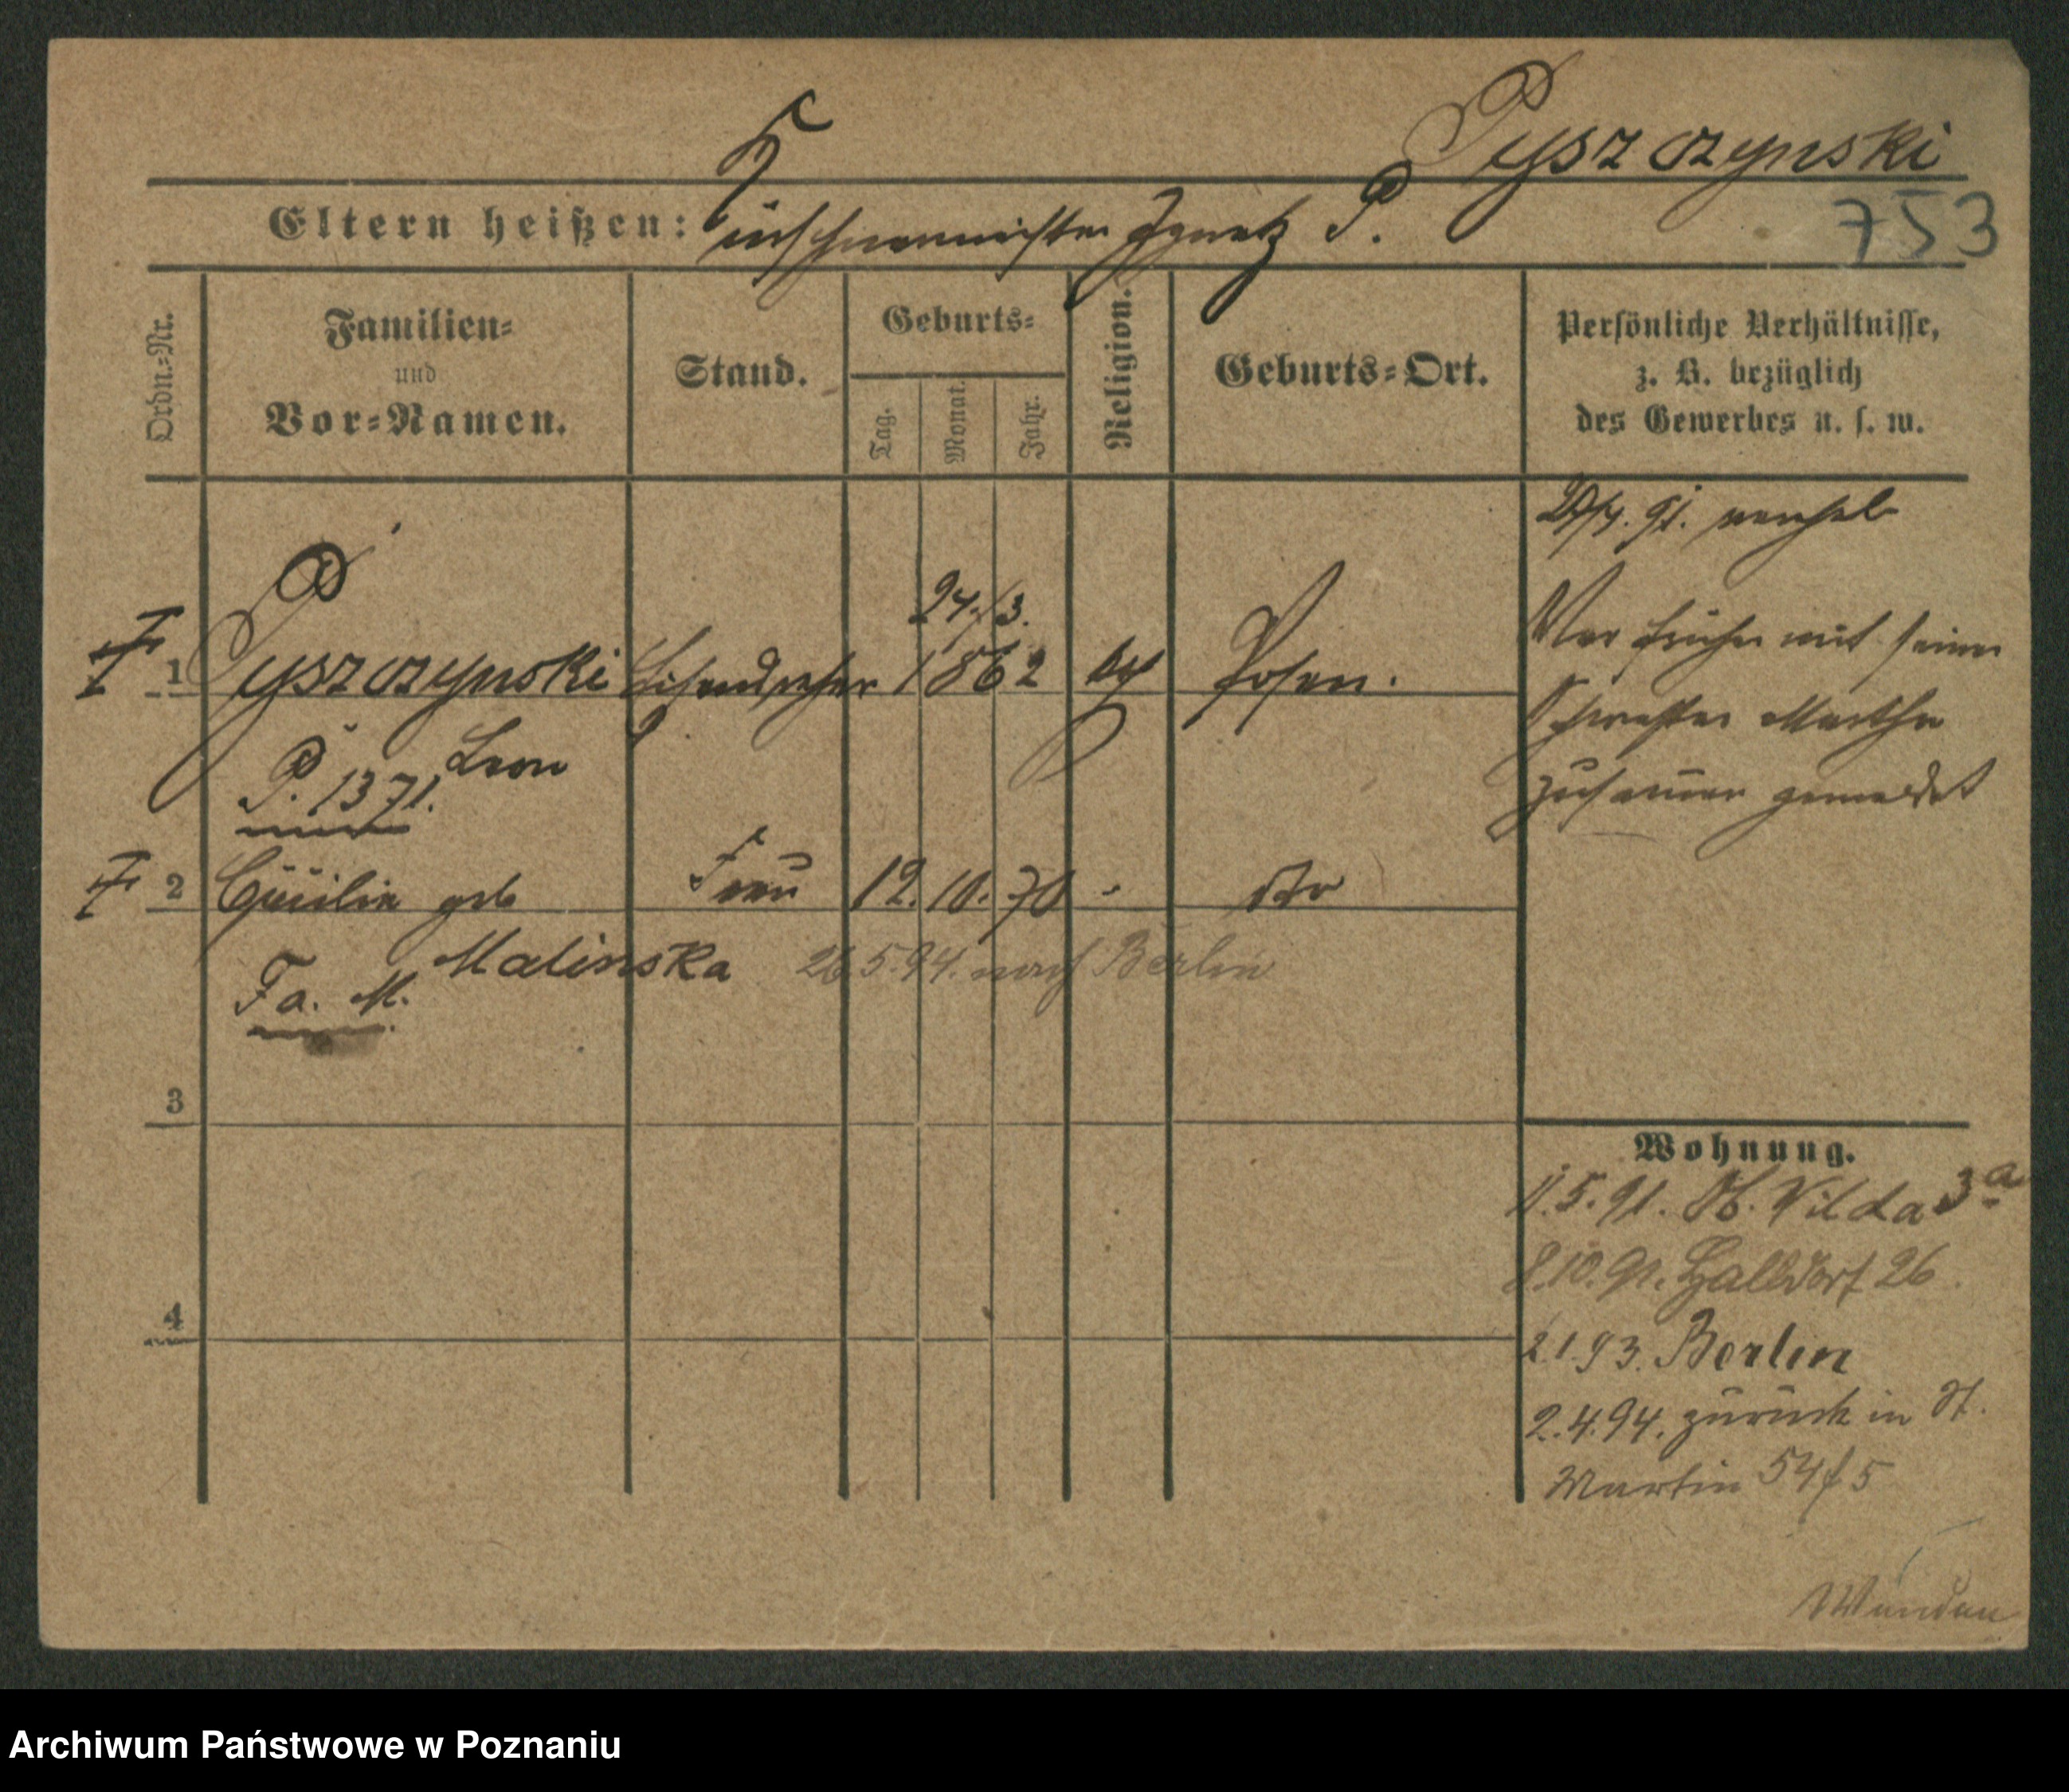 Pyszczynski
Eltern heißen: Kürschnermeister Ignatz P.
753
Ordn.-Nr.
Familien-
und
Vor-Namen.
Stand.
Geburts-
Tag.
Monat.
Jahr.
Religion.
Geburts-Ort.
Persönliche Verhältnisse,
z. B. bezüglich
des Gewerbes u. s. w.
91. verhel
24/3.
1 Pyszczynski 1862 Posen.
War früher mit seiner
Schwester Martha
zusammen gemeldet
Leon
P. 1371.
2 Cäcilie geb Frau 12. 10. 70 -
Malinska 26.5.94. nach Berlin
Fa. M.
3
4
Wohnung.
11.5.91. Ob. Vilda 3a
8.10.91. Halbdorf 26.
2.1.93. Berlin
2.4.94. zurück in St.
Martin 54/5
Archiwum Państwowe w Poznaniu